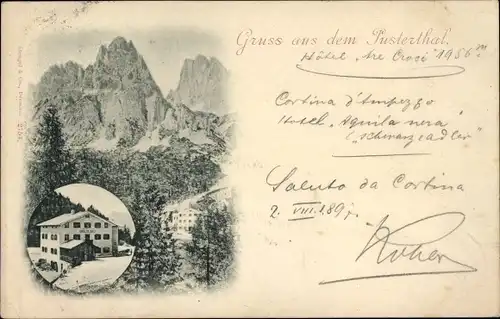 Gruss aus dem Pusterthal.
Hôtel „Tre Croci" 1956 m
Cortina d'Ampezzo
Hotel „Aquila nera"
(„Schwarzadler"
Saluto da Cortina
2. VIII. 1897